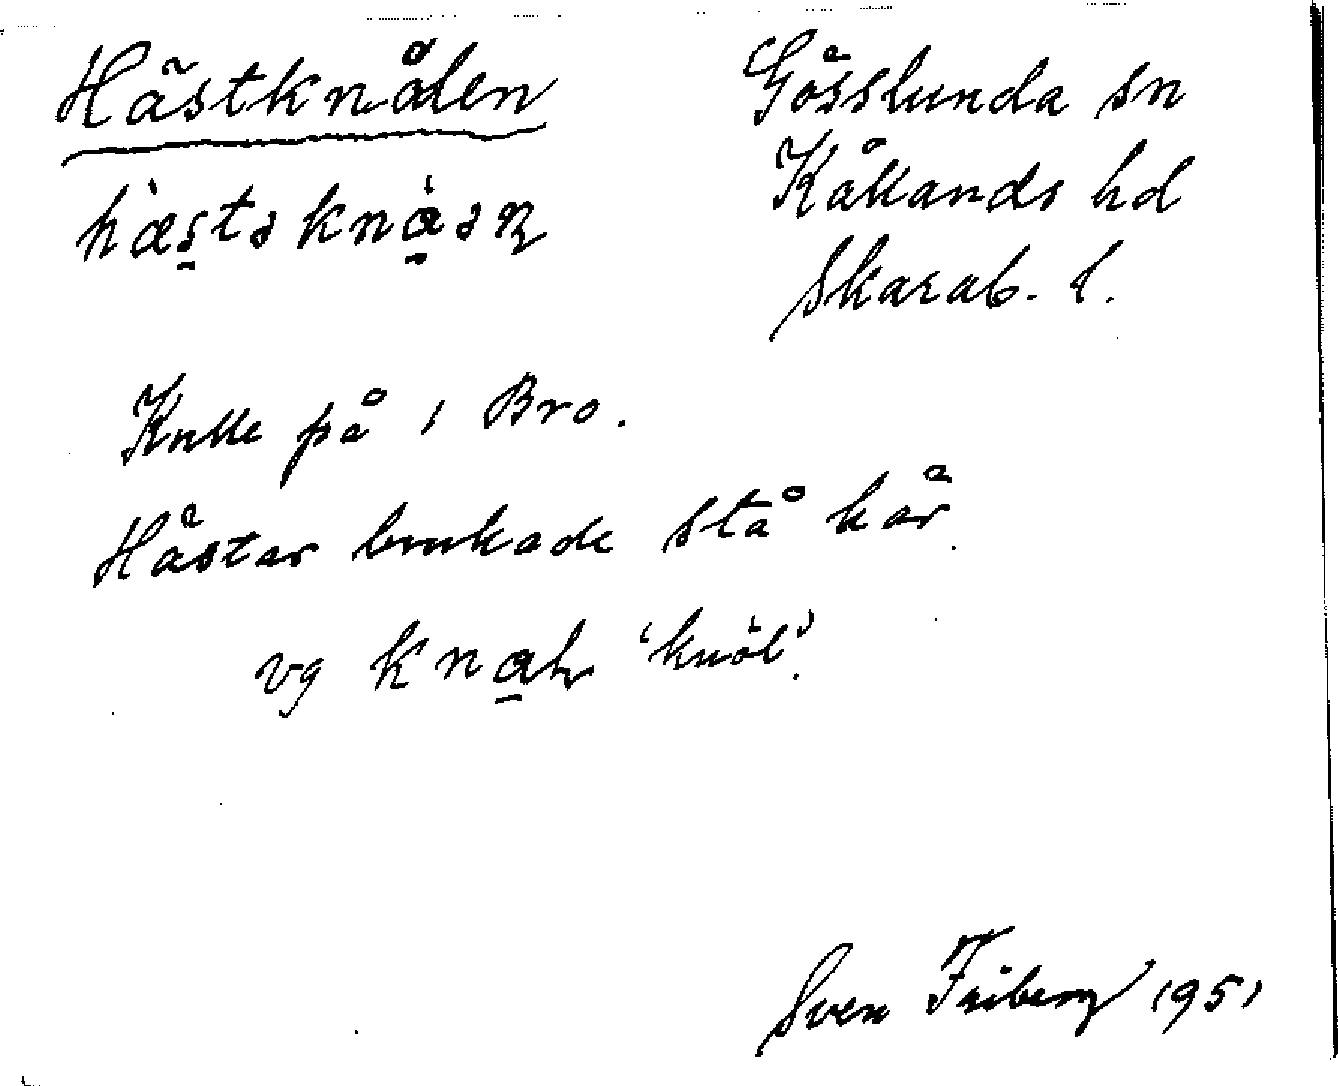 Hästknålen
Gösslunda sn
Kållands hd
Skarab. l.
Kulle på 1 Bro.
Hästar brukade stå här.
vg knaḷ 'knöl'.
Sven Friberg 1951